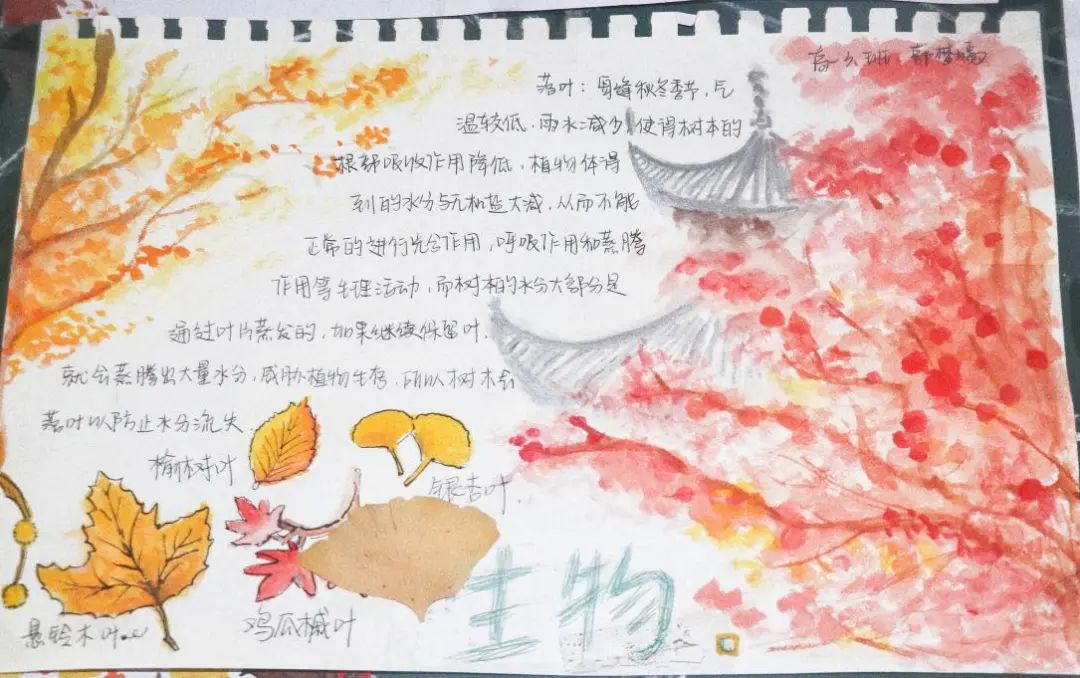 高 班
落叶：每逢秋冬季节，气
温较低，雨水减少，使得树木的
根部吸收作用降低，植物体得
到的水分与无机盐大减，从而不能
正常的进行光合作用，呼吸作用和蒸腾
作用等生理活动，而树木的水分大部分是
通过叶片蒸发的，如果继续保留叶，
就会蒸腾出大量水分，威胁植物生存，所以树木会
落叶以防止水分流失
榆树叶
银杏叶.
悬铃木叶
鸡瓜槭叶
生物